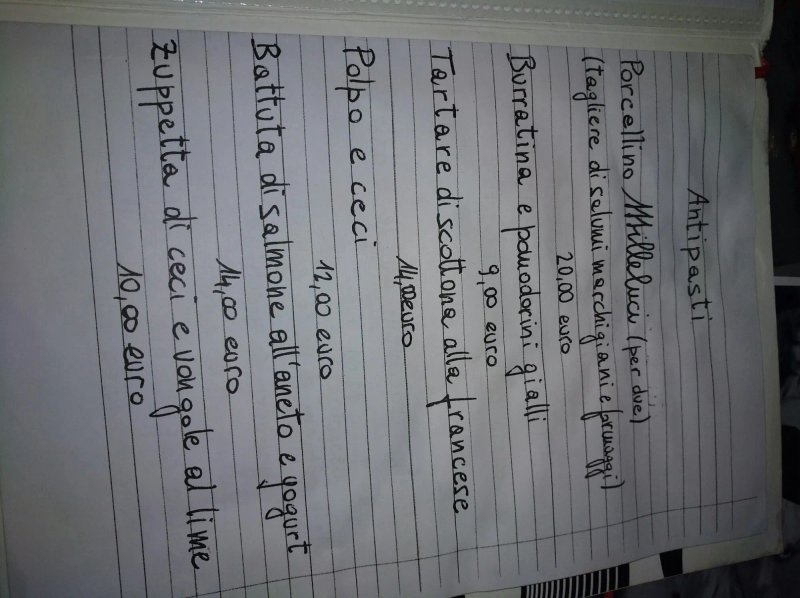 Antipasti
Porcellino Milleluci (per due)
(tagliere di salumi marchigiani e formaggi)
20,00 euro
Burratina e pomodorini gialli
9,00 euro
Tartare di scottona alla francese
14,00 euro
Polpo e ceci
12,00 euro
Battuta di salmone all'aneto e yogurt
14,00 euro
Zuppetta di ceci e vongole al lime
10,00 euro